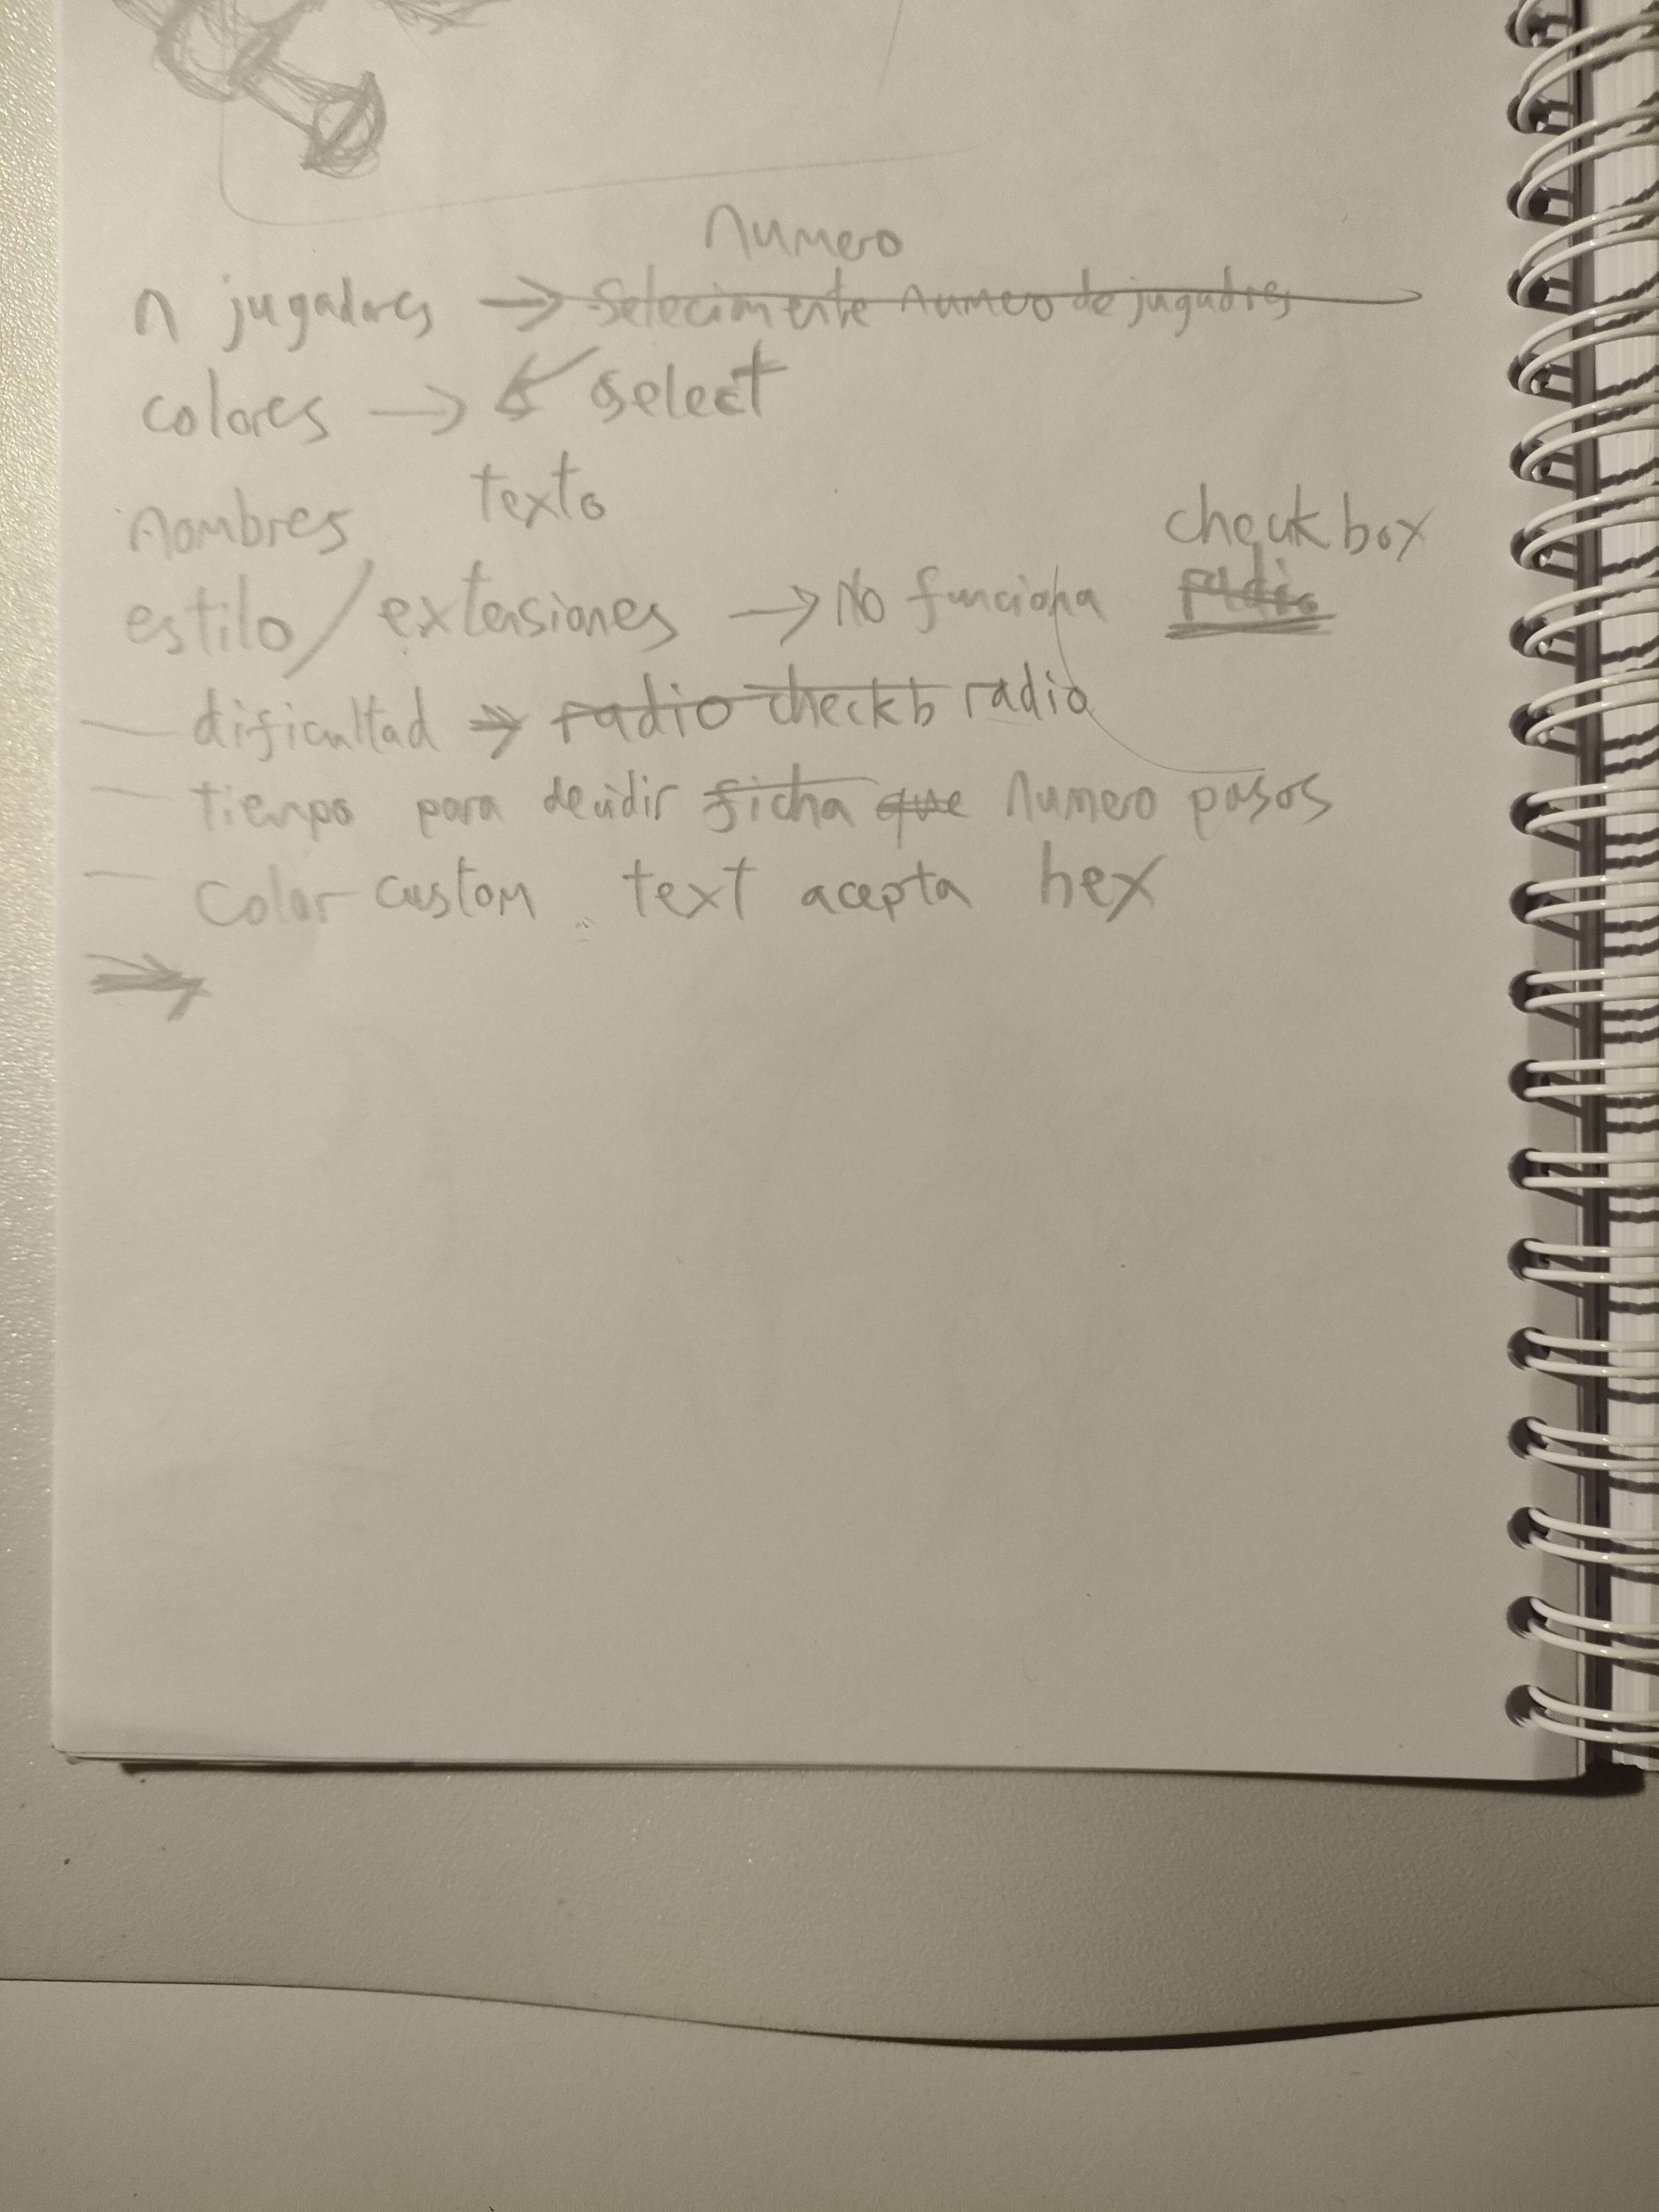 numero
n jugadores → Selecimente numero de jugadres
colores → select
texto
nombres
checkbox
estilo/extensiones → No funciona radio
— dificultad → radio checkb radio
— tiempo para decidir ficha que numero pasos
— Color custom text acepta hex
→